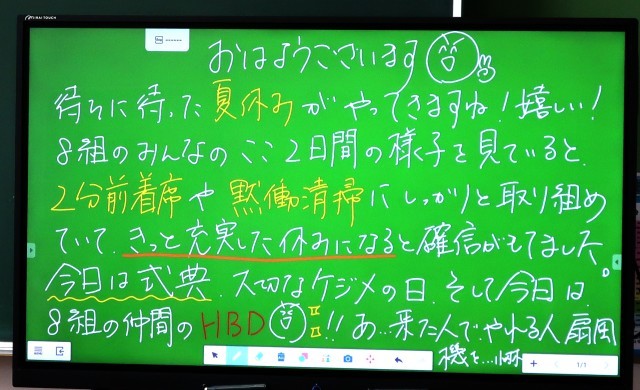 おはようございます
待ちに待った夏休みがやってきますね!嬉しい!
8組のみんなのここ2日間の様子を見ていると、
2分前着席や黙働清掃にしっかりと取り組め
ていて、きっと充実した休みになると確信がもてました。
今日は式典。大切なケジメの日。そして今日は、
8組の仲間のHBD!!あ…来た人で、やれる人扇風
機を…
1/1